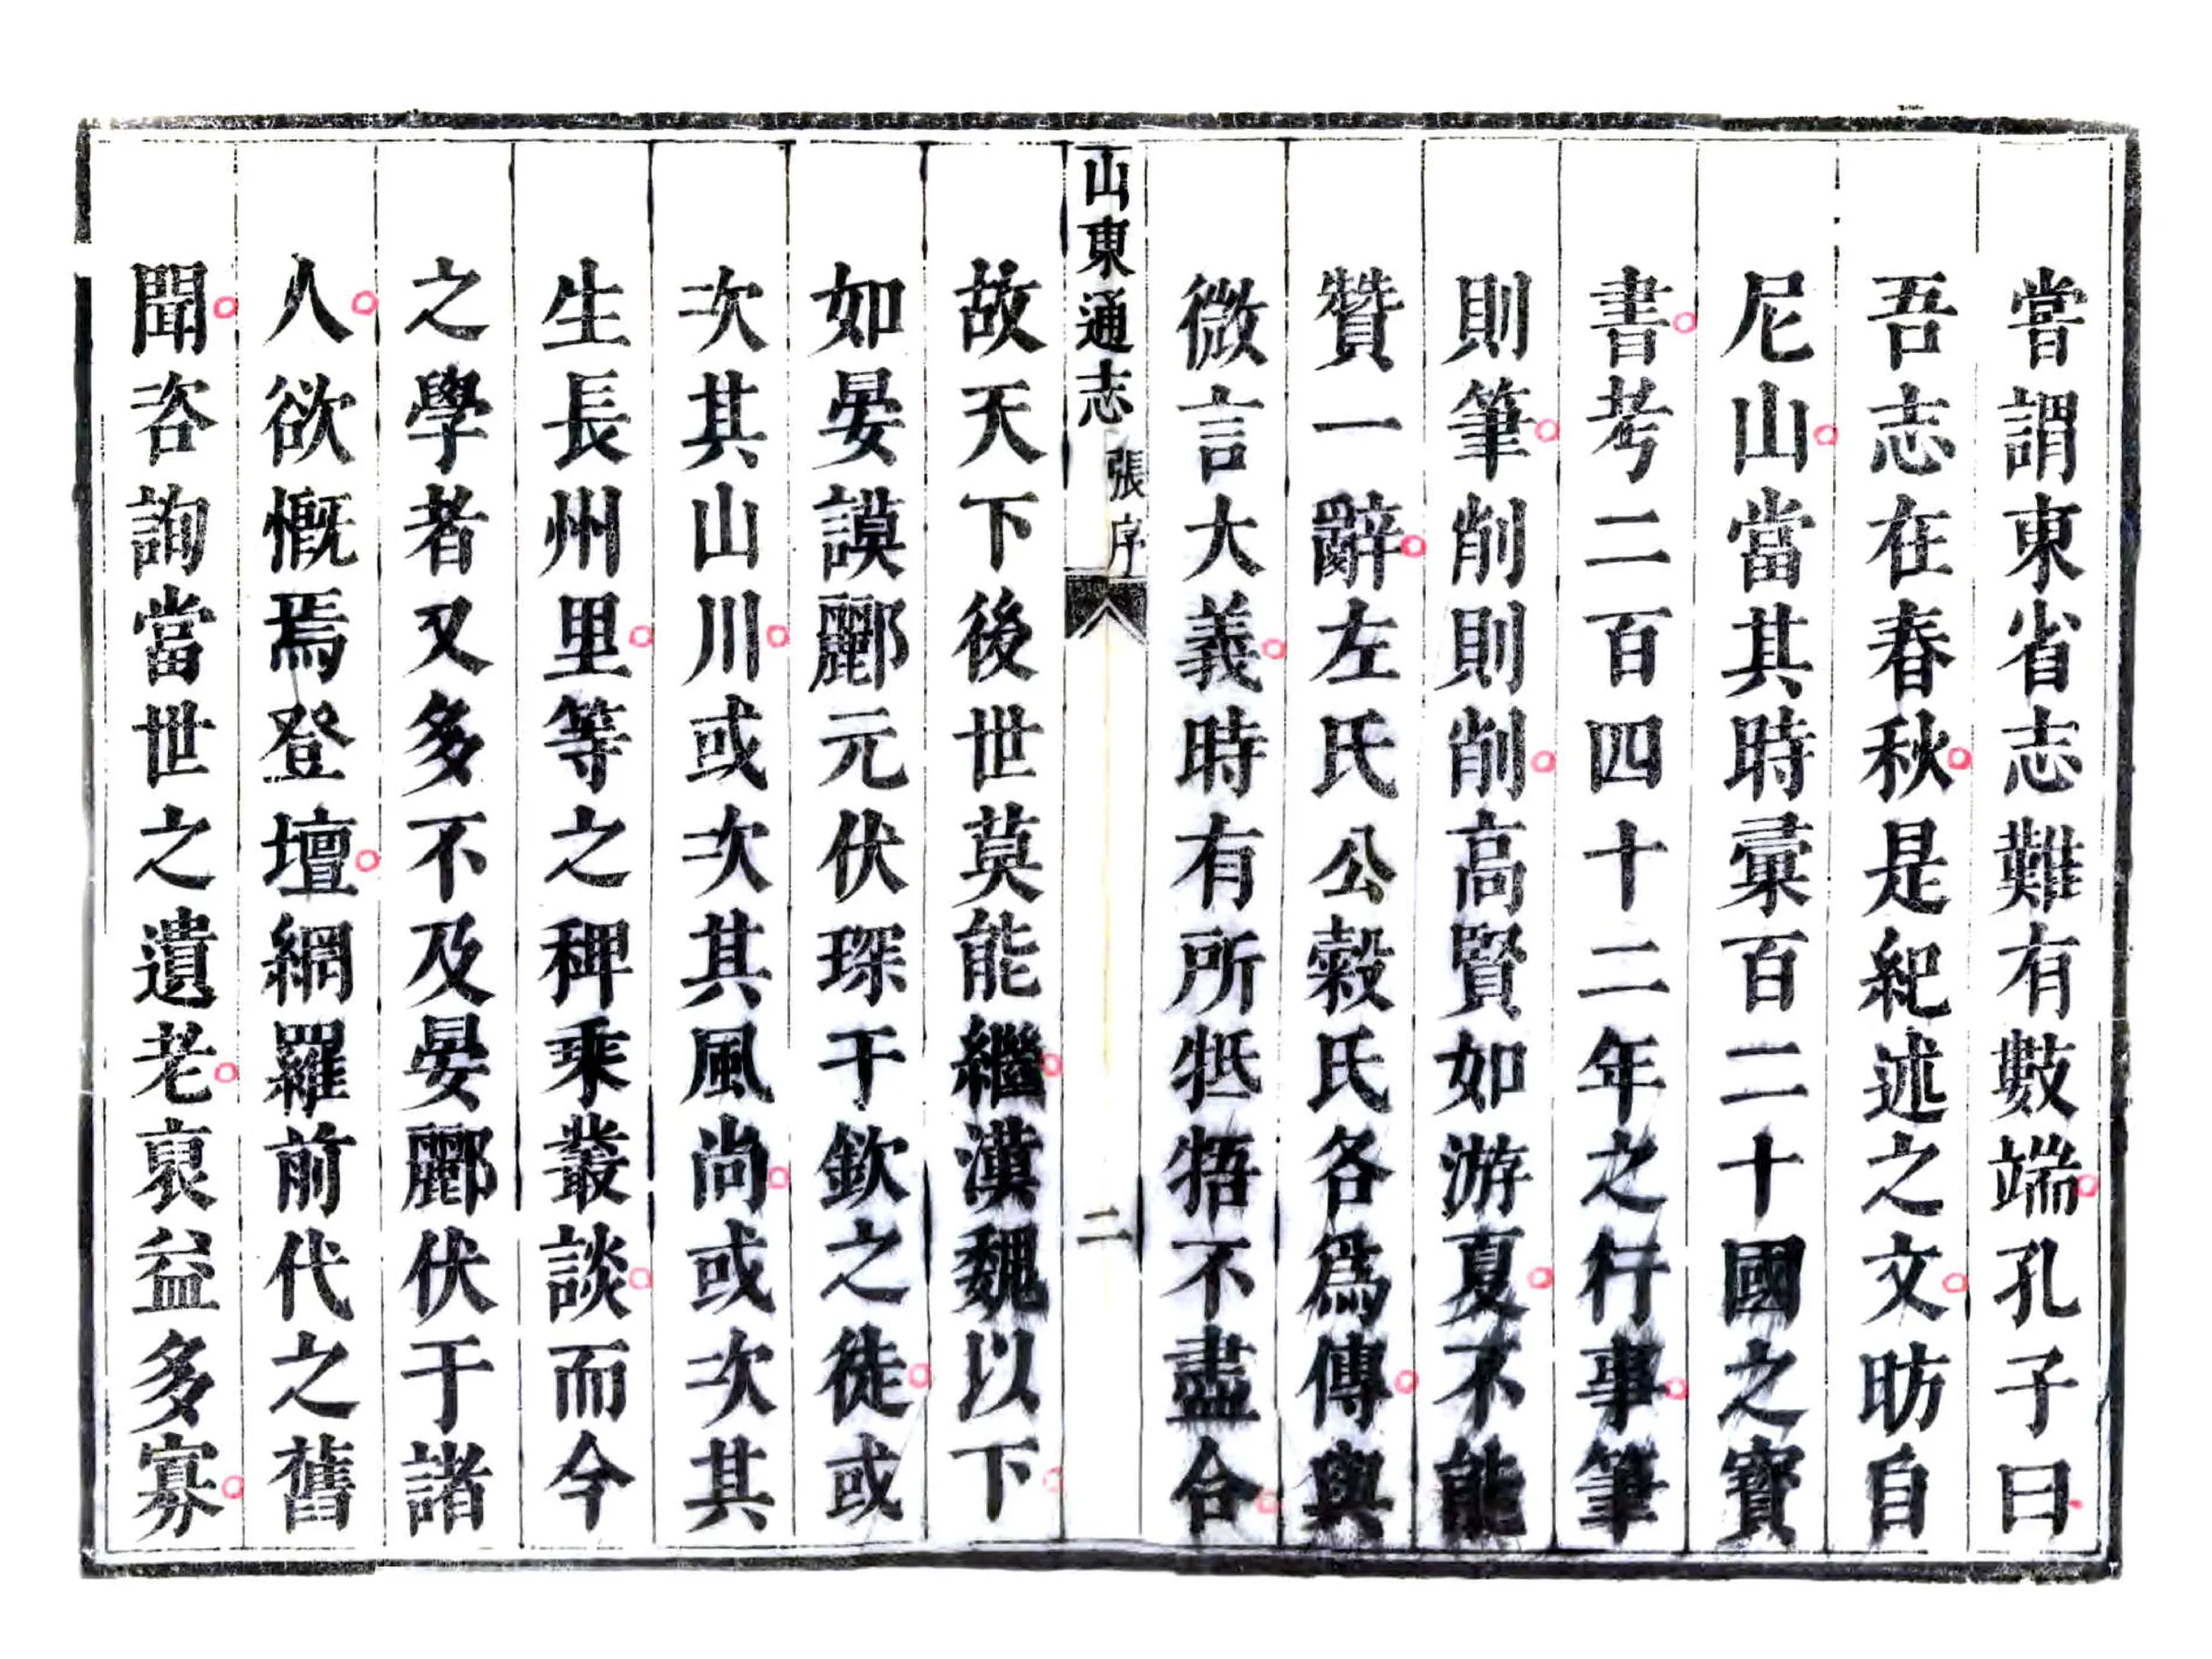 嘗謂東省志難有數端孔子曰
吾志在春秋是紀述之文昉自
尼山當其時彙百二十國之寶
書考二百四十二年之行事筆
則筆削則削高賢如游夏不能
贊一辭左氏公穀氏各爲傳與
微言大義時有所牴牾不盡合
山東通志 張序 二
故天下後世莫能繼漢魏以下
如晏謨酈元伏琛于欽之徒或
次其山川或次其風尚或次其
生長州里等之稗乘叢談而今
之學者又多不及晏酈伏于諸
人欲慨焉登壇網羅前代之舊
聞咨詢當世之遺老裒益多寡